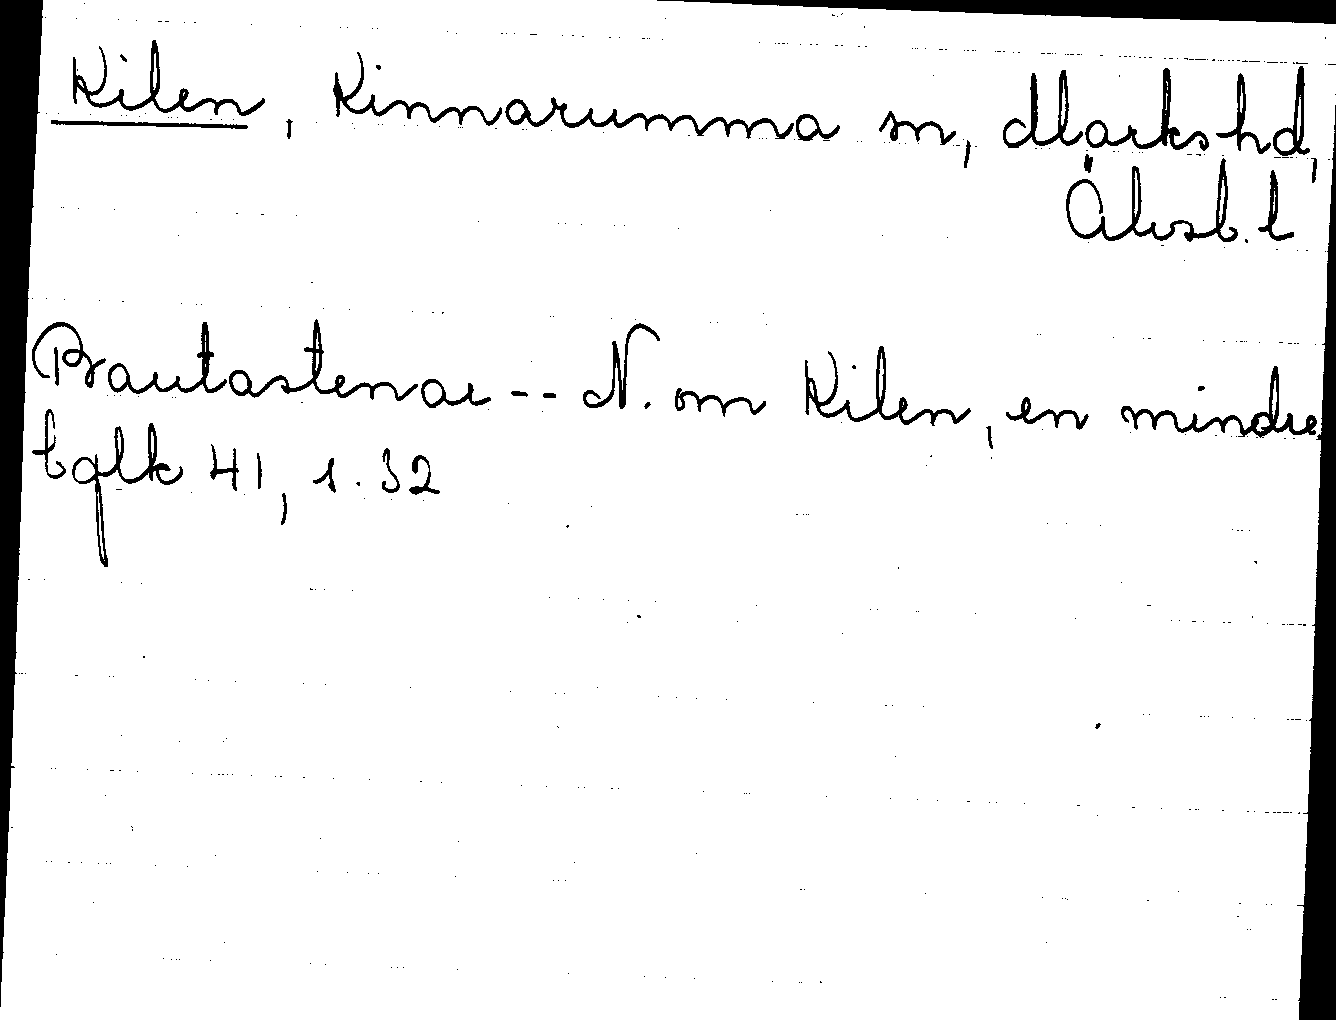 Kilen, Kinnarumma sn, Marks hd,
Älvsb. l
Bautastenar -- N. om Kilen, en mindre
bglk 41, s. 32